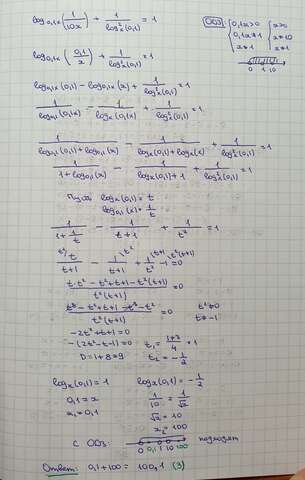 log₀,₁ₓ(1/10x) + 1/log²ₓ(0,1) = 1
ОДЗ: { 0,1x>0 { x>0
0,1x≠1 x≠10
x≠1 x≠1
0 1 10
log₀,₁ₓ(0,1/x) + 1/log²ₓ(0,1) = 1
log₀,₁ₓ(0,1) - log₀,₁ₓ(x) + 1/log²ₓ(0,1) = 1
1/log₀,₁(0,1x) - 1/logₓ(0,1x) + 1/log²ₓ(0,1) = 1
1/(log₀,₁(0,1)+log₀,₁(x)) - 1/(logₓ(0,1)+logₓ(x)) + 1/log²ₓ(0,1) = 1
1/(1+log₀,₁(x)) - 1/(logₓ(0,1)+1) + 1/log²ₓ(0,1) = 1
Пусть logₓ(0,1) = t
log₀,₁(x) = 1/t
1/(1+1/t) - 1/(t+1) + 1/t² = 1
t/(t+1) - 1/(t+1) + 1/t² - 1 = 0
(t·t² - t² + t+1 - t²(t+1))/(t²(t+1)) = 0
(t³ - t² + t+1 - t³ - t²)/(t²(t+1)) = 0 t²≠0
t≠-1
-2t²+t+1=0
-(2t²-t-1)=0 t₁ = (1+3)/4 = 1
D=1+8=9 t₂ = -1/2
logₓ(0,1)=1 logₓ(0,1) = -1/2
0,1=x 1/10 = 1/√x
x₁=0,1 √x = 10
x₂=100
с ОДЗ: 0 0,1 1 10 100 подходят
Ответ: 0,1+100 = 100,1 (3)